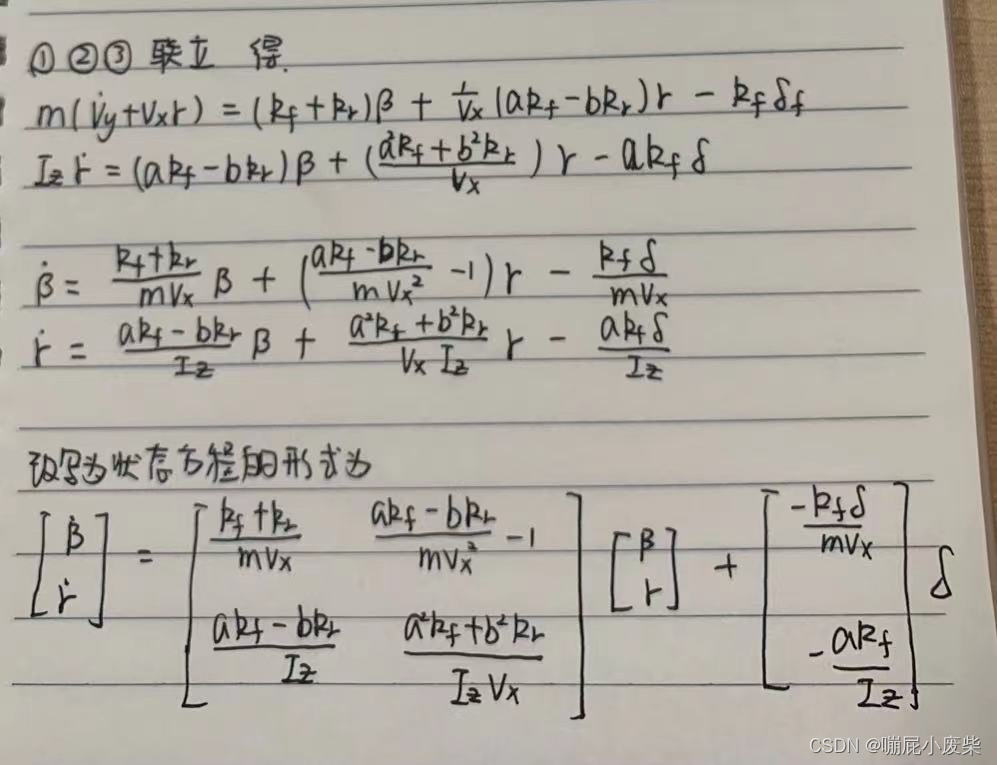 ①②③ 联立 得.
m(v̇y+vxr) = (kf+kr)β + 1/vx (akf-bkr)r - kfδf
Iz ṙ = (akf-bkr)β + (a²kf+b²kr / vx) r - akfδ
β̇ = kf+kr / mvx β + (akf-bkr / mvx² -1)r - kfδ / mvx
ṙ = akf-bkr / Iz β + a²kf+b²kr / vx Iz r - akfδ / Iz
改写为状态方程的形式为
[β̇ ṙ] = [kf+kr / mvx akf-bkr / mvx² -1 akf-bkr / Iz a²kf+b²kr / Iz vx] [β r] + [-kfδ / mvx -akf / Iz] δ
CSDN @嘣屁小废柴